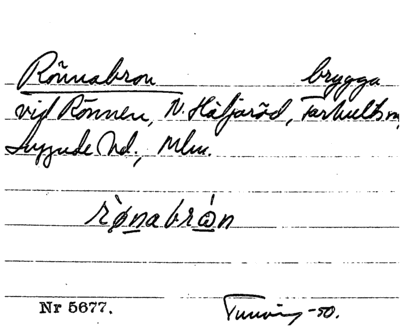 Rönnabron brygga
vid Rönnen, N. Häljaröd, Farhult sn,
Luggude hd., Mlm.
rø̀nabrωn
Nr 5677.
Tuneving -50.